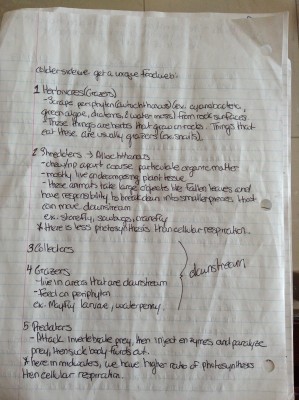 older side we get a unique food web:
1 Herbivores (Grazers)
- Scrape periphyton (autochthanous) (ex. cyanobacteria,
green algae, diatoms, & water moss) from rock surfaces.
- These things are biotas that grow on rocks. Things that
eat those are usually grazers (ex. snails).
2 Shredders → Allochthanous
- chewing apart coarse particulate organic matter
- mostly live on decomposing plant tissue
- these animals take large objects like fallen leaves and
have responsibility to break down into smaller pieces that
can move downstream
ex. stonefly, sowbugs, cranefly
* there is less photosynthesis than cellular respiration.
3 Collectors
4 Grazers
- live in areas that are downstream
- Feed on periphyton
ex. Mayfly larvae, water penny.
downstream
5 Predators
- Attack invertebrate prey, then inject enzymes and paralyse
prey, then suck body fluids out.
* here in midwaters, we have higher ratio of photosynthesis
then cellular respiration.